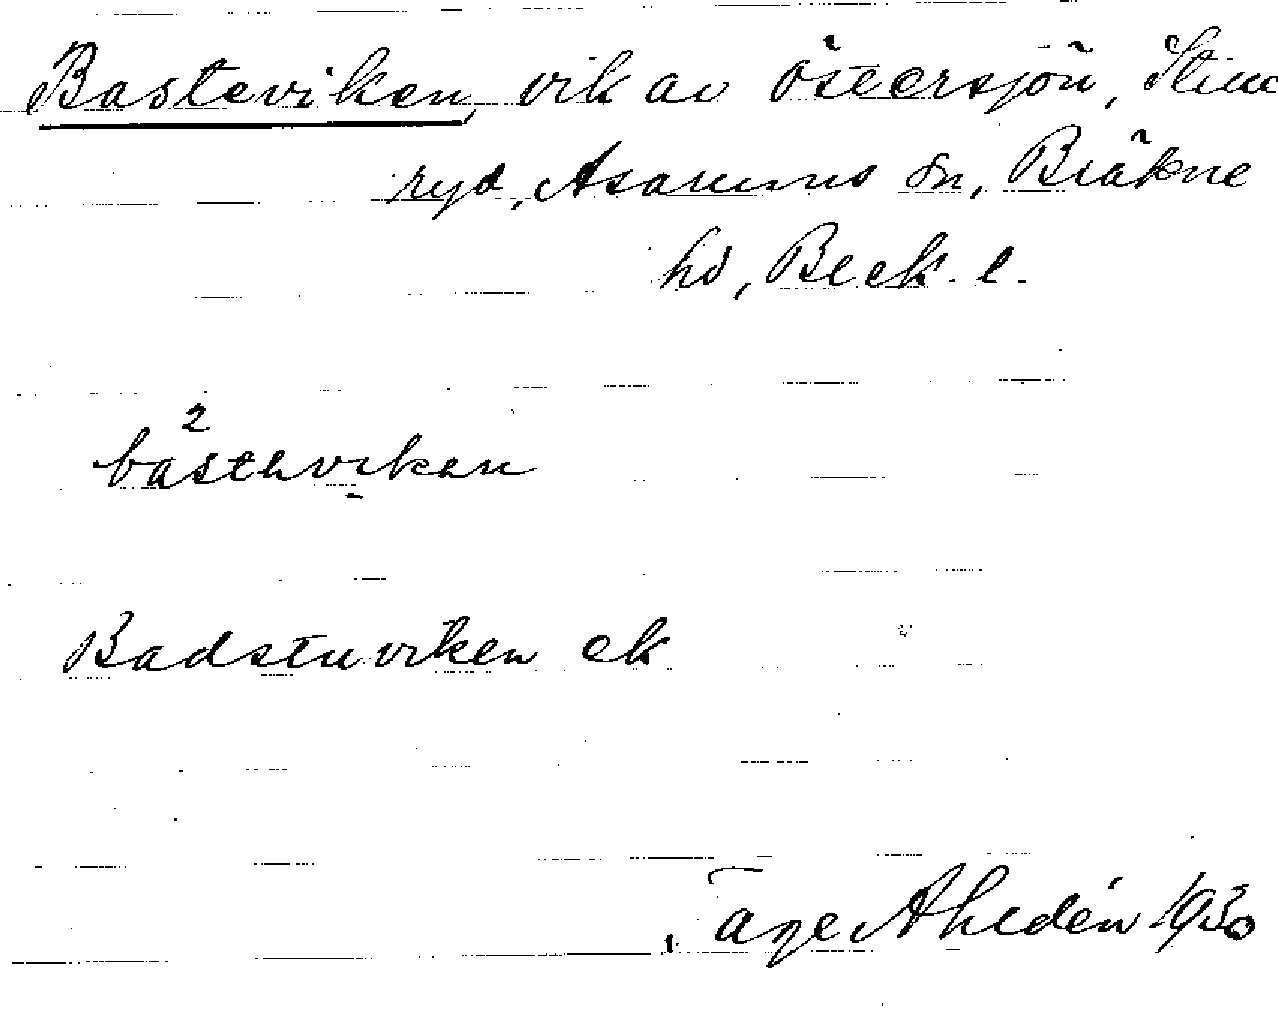 Basteviken, vik av Östersjön, Stene
ryd, Asarums sn, Bräkne
hd, Bleck. l.
2
basteviken
Badstuviken ek
Tage Ahldén 1930